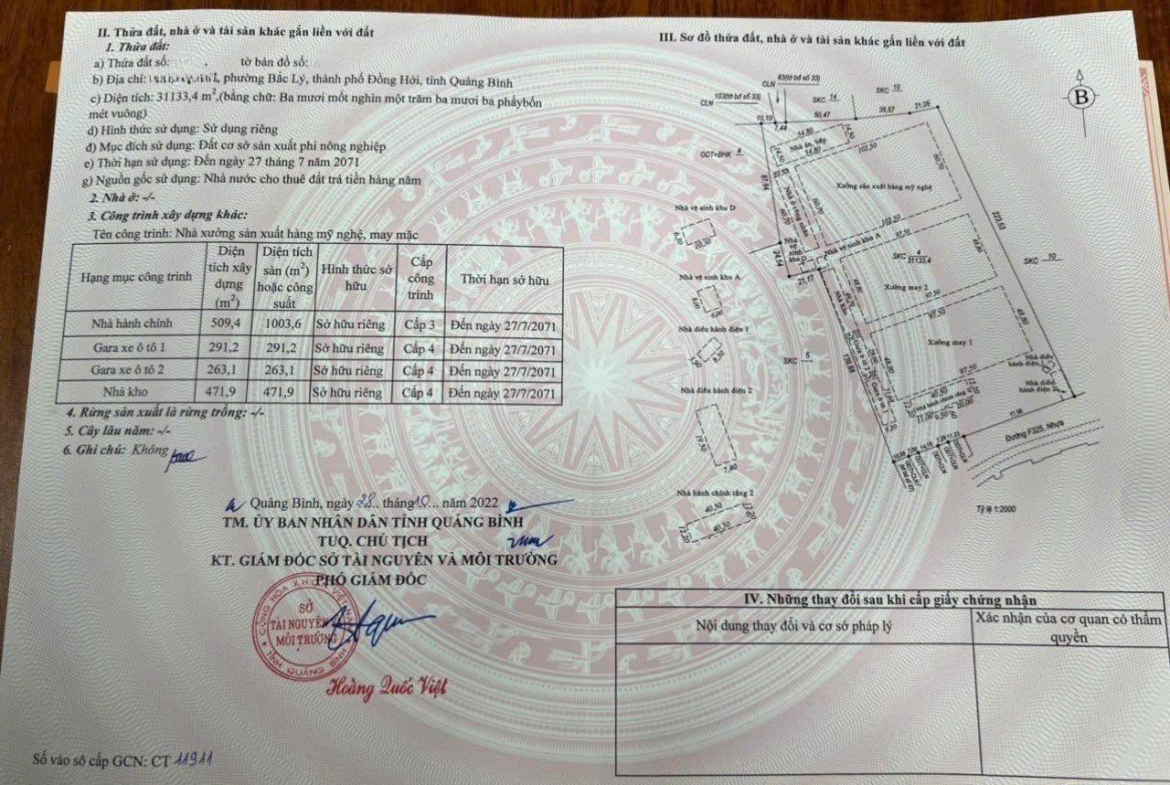 II. Thửa đất, nhà ở và tài sản khác gắn liền với đất
1. Thửa đất:
a) Thửa đất số: , tờ bản đồ số:
b) Địa chỉ: phường Bắc Lý, thành phố Đồng Hới, tỉnh Quảng Bình
c) Diện tích: 31133,4 m²,(bằng chữ: Ba mươi mốt nghìn một trăm ba mươi ba phẩybốn
mét vuông)
d) Hình thức sử dụng: Sử dụng riêng
đ) Mục đích sử dụng: Đất cơ sở sản xuất phi nông nghiệp
e) Thời hạn sử dụng: Đến ngày 27 tháng 7 năm 2071
g) Nguồn gốc sử dụng: Nhà nước cho thuê đất trả tiền hàng năm
2. Nhà ở: -/-
3. Công trình xây dựng khác:
Tên công trình: Nhà xưởng sản xuất hàng mỹ nghệ, may mặc
Hạng mục công trình
Diện tích xây dựng (m²)
Diện tích sàn (m²) hoặc công suất
Hình thức sở hữu
Cấp công trình
Thời hạn sở hữu
Nhà hành chính 509,4 1003,6 Sở hữu riêng Cấp 3 Đến ngày 27/7/2071
Gara xe ô tô 1 291,2 291,2 Sở hữu riêng Cấp 4 Đến ngày 27/7/2071
Gara xe ô tô 2 263,1 263,1 Sở hữu riêng Cấp 4 Đến ngày 27/7/2071
Nhà kho 471,9 471,9 Sở hữu riêng Cấp 4 Đến ngày 27/7/2071
4. Rừng sản xuất là rừng trồng: -/-
5. Cây lâu năm: -/-
6. Ghi chú: Không
Quảng Bình, ngày 28 tháng 10 năm 2022
TM. ỦY BAN NHÂN DÂN TỈNH QUẢNG BÌNH
TUQ. CHỦ TỊCH
KT. GIÁM ĐỐC SỞ TÀI NGUYÊN VÀ MÔI TRƯỜNG
PHÓ GIÁM ĐỐC
SỞ
TÀI NGUYÊN
MÔI TRƯỜNG
TỈNH QUẢNG BÌNH
Hoàng Quốc Việt
Số vào sổ cấp GCN: CT 11911
III. Sơ đồ thửa đất, nhà ở và tài sản khác gắn liền với đất
B
CLN
CLN
SKC 14
SKC 10
10,10
7,44
50,47
39,67
21,05
ODT+BHK 4
14,80
14,50
14,80
14,50
Nhà ăn, bếp
102,50
60,70
Xưởng sản xuất hàng mỹ nghệ
60,70
60,70
102,50
223,53
SKC 10
Nhà vệ sinh khu D
6,20
10,30
24,54
21,17
Nhà vệ sinh khu A
97,50
SKC 4
31133,4
48,80
Xưởng may 2
97,50
97,50
48,80
Xưởng may 1
97,50
Nhà vệ sinh khu A
8,00
6,00
Nhà điều hành điện 1
9,50
SKC 5
Nhà điều hành điện 2
19,50
7,40
Nhà hành chính tầng 2
40,50
12,20
40,50
77,98
Đường F325, Nhựa
Tỷ lệ 1:2000
IV. Những thay đổi sau khi cấp giấy chứng nhận
Nội dung thay đổi và cơ sở pháp lý
Xác nhận của cơ quan có thẩm
quyền